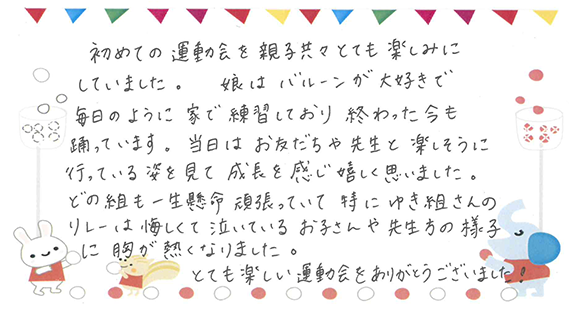 初めての運動会を親子共々とても楽しみに
していました。 娘はバルーンが大好きで
毎日のように家で練習しており 終わった今も
踊っています。当日はお友だちや先生と楽しそうに
行っている姿を見て成長を感じ嬉しく思いました。
どの組も一生懸命頑張っていて 特にゆき組さんの
リレーは悔しくて泣いているお子さんや先生方の様子
に胸が熱くなりました。
とても楽しい運動会をありがとうございました!